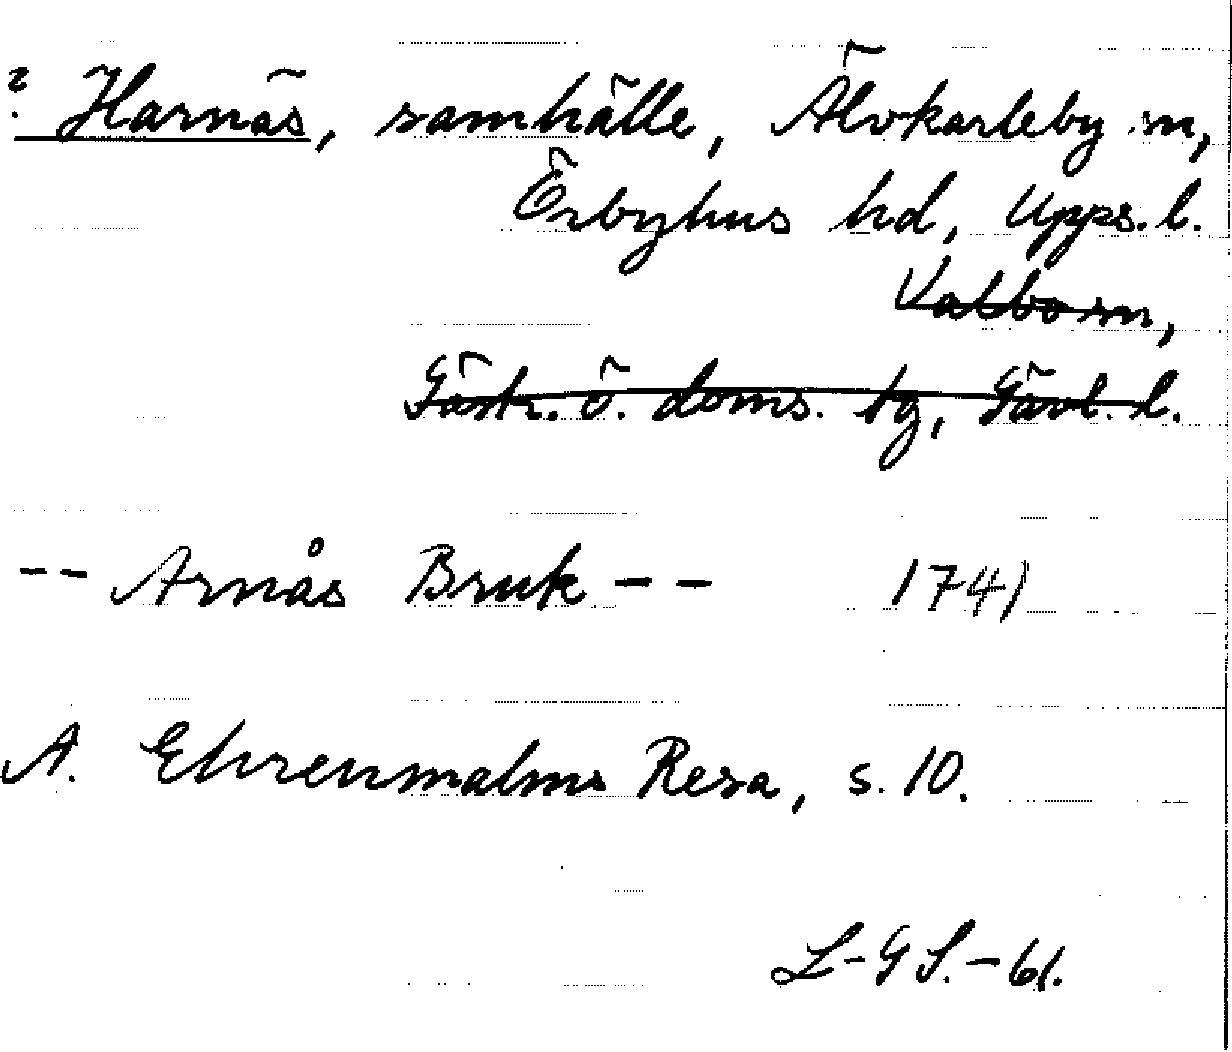 ? Harnäs, samhälle, Älvkarleby sn,
Örbyhus hd, Upps. l.
Valbo sn,
Gästr. ö. doms. tg, Gävl. l.
-- Arnås Bruk -- 1741
A. Ehrenmalms Resa, s. 10.
L-G S. - 61.